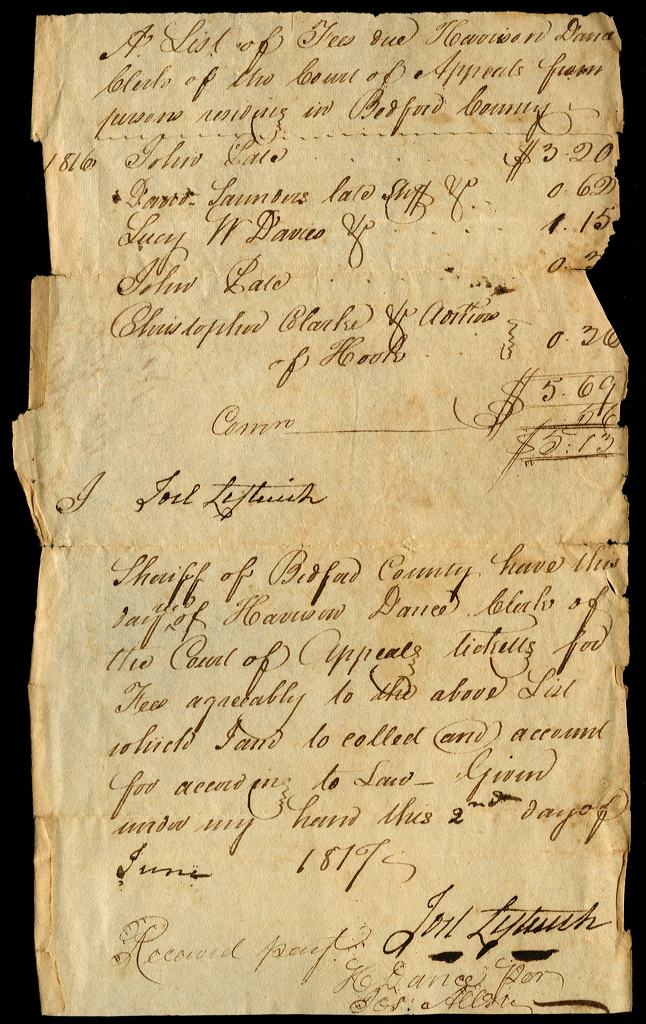 A List of Fees due Harrison Dance
Clerk of the Court of Appeals from
persons residing in Bedford County
1816 John Pate $3.20
David Saunders late Shff &c 0.62
Lucy W Davies &c 1.15
John Pate 0.3
Christopher Clarke &c Adttors
of Hook 0.36
$5.69
Comms .56
$5.13
I Joel Leftwich
Sheriff of Bedford County have this
day recd of Harrison Dance Clerk of
the Court of Appeals ticketts for
Fees agreeably to the above List
which I am to collect and account
for according to Law_ Given
under my hand this 2nd day of
June 1817
Joel Leftwich
Received payt
H Dance per
Jos: Allen